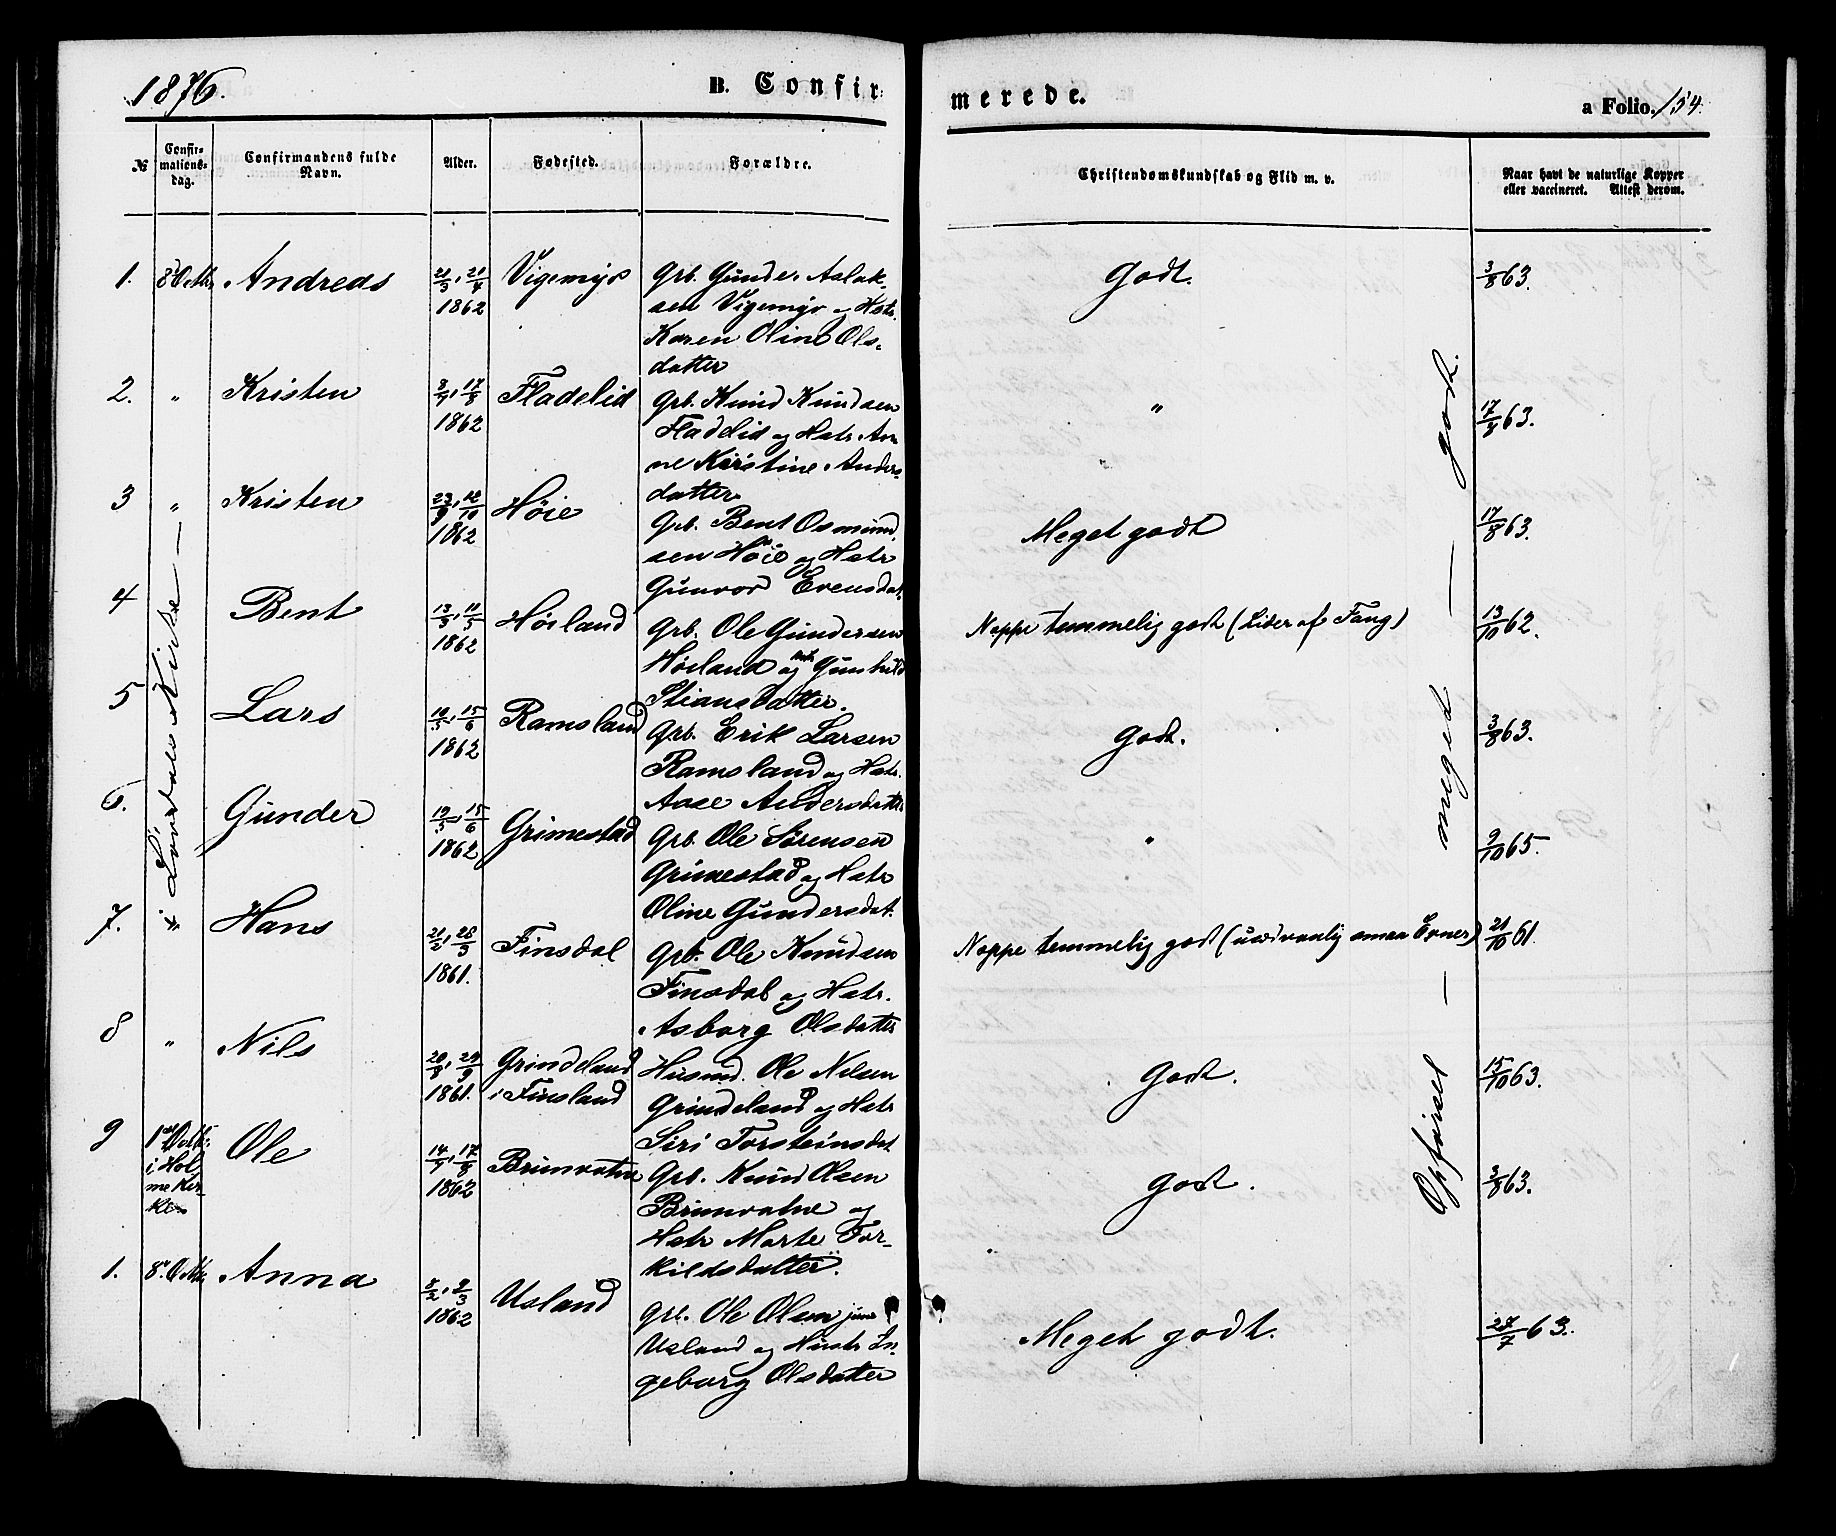 1876.
B. Confirmerede.
a Folio. 154.
№
Confirmationsdag.
Confirmandens fulde Navn.
Alder.
Fødested.
Forældre.
Christendomskundskab og Flid m. v.
Naar havt de naturlige Kopper eller vaccineret. Attest derom.
1. 8de Octbr Andreas 21/3, 21/4 1862 Vigemyr
Grb. Gunder Aslak-
sen Vigemyr og Hstr.
Karen Oline Ols-
datter
Godt. 3/8 63.
2. " Kristen 1862 Fladelid
Grb. Knud Knudsen
Fladelid og Hstr. An
ne Kirstine Anders
datter
" 17/8 63.
3 " Kristen 23/9, 12/10 1862 Høie
Grb. Bent Osmund
sen Høie og Hstr
Gunvor Evensdat.
Meget godt 17/8 63.
4 Bent 13/3, 11/5 1862 Høiland
Grb. Ole Gundersen
Høiland og Hstr Gunhild
Stiansdatter.
Noppe temmelig godt (Lider af Tang) 13/10 62.
5 Lars 10/5, 15/6 1862 Ramsland
Grb. Erik Larsen
Ramsland og Hstr.
Aase Andersdatter
Godt. 3/8 63.
6. Gunder 19/5, 15/6 1862 Grimestad
Grb. Ole Sørensen
Grimestad og Hstr
Oline Gundersdat.
" 9/10 65.
7. " Hans 21/2, 28/3 1861. Finsdal
Grb. Ole Knudsen
Finsdal og Hstr.
Asborg Olsdatter
Noppe temmelig godt (usædvanlig smaa Evner) 21/10 61.
8 " Nils 20/8, 29/9 1861. Grindeland
i Finsland
Husmd. Ole Nilsen
Grindeland og Hstr
Siri Torsteinsdat
Godt. 15/10 63.
i Laudals Kirke
9 1ste Octb.
i Hol
me Kir-
ken
Ole 14/7, 17/8 1862 Brunvatne
Grb. Knud Olsen
Brunvatne og
Hstr Marte Tor-
kildsdatter.
Godt. 3/8 63.
1. 8de Octbr. Anna 8/2, 9/3 1862 Usland
Grb. Ole Olsen jun
Usland og Hustr. In
geborg Olsdatter
Meget godt. 28/7 63.
Opførsel — meget — godt.